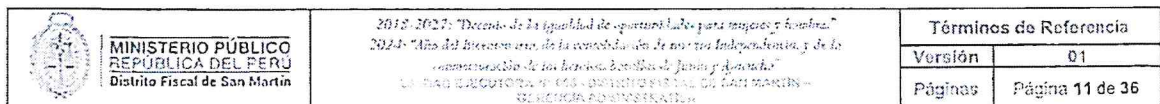 MINISTERIO PÚBLICO
REPÚBLICA DEL PERÚ
Distrito Fiscal de San Martín
2018-2027: "Decenio de la igualdad de oportunidades para mujeres y hombres"
2024: "Año del Bicentenario, de la consolidación de nuestra Independencia, y de la
conmemoración de las heroicas batallas de Junín y Ayacucho"
DISTRITO FISCAL DE SAN MARTÍN –
GERENCIA ADMINISTRATIVA
Términos de Referencia
Versión 01
Páginas Página 11 de 36